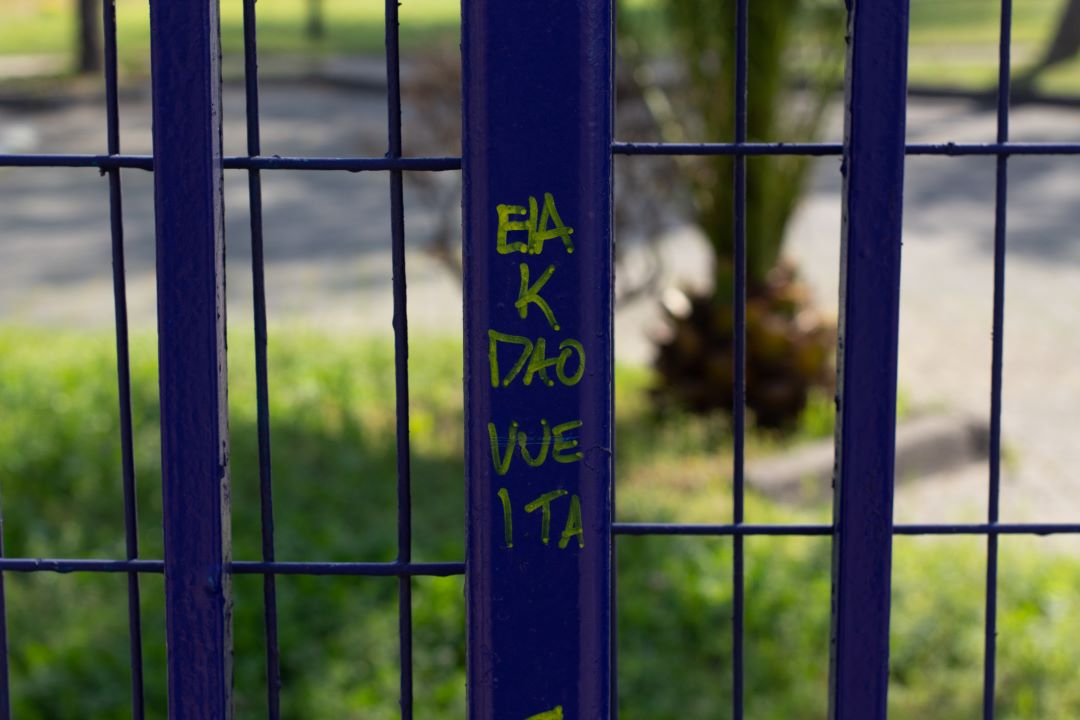 EIA
K
DAO
VUE
ITA